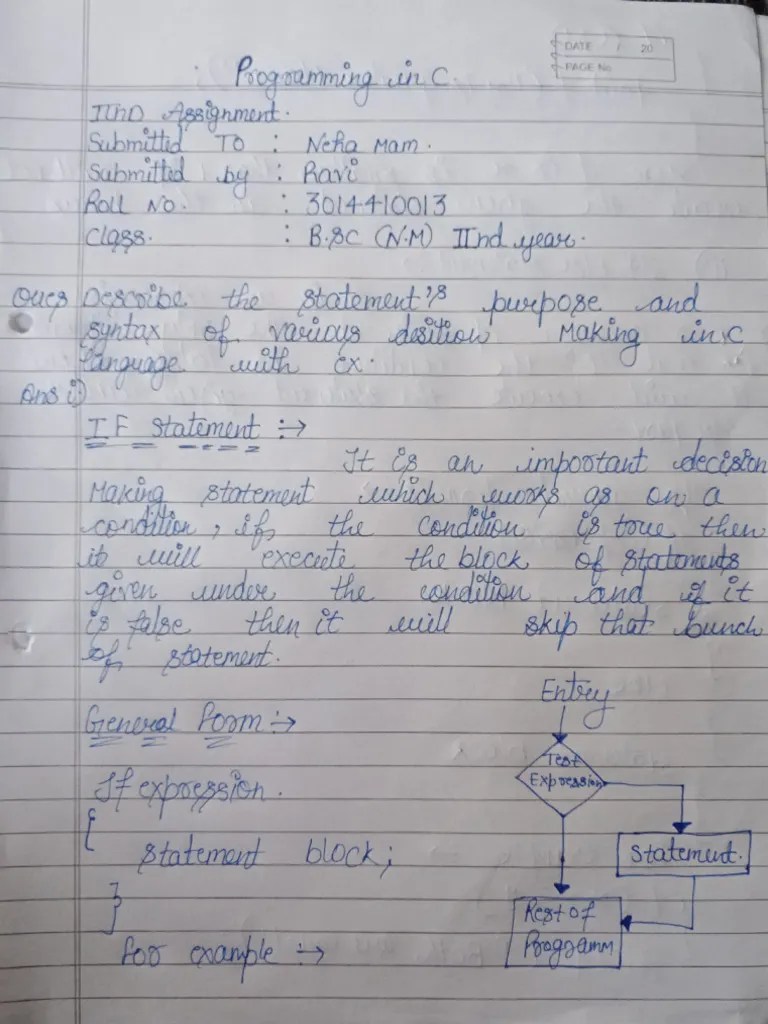 DATE / 20
PAGE No
: Programming in C.
IInd Assignment.
Submitted To : Neha Mam.
Submitted by : Ravi
Roll No. : 3014410013
Class. : B.SC (N.M) IInd year.
Ques Describe the statement's purpose and
syntax of various desition Making in C
language with ex.
Ans i)
IF statement :->
It is an important decision
Making statement which works as on a
condition, if the condition is true then
it will execute the block of statements
given under the condition and if it
is false then it will skip that bunch
of statement.
General form :->
If expression.
{
statement block;
}
for example :->
Entry
Test
Expression
Statement.
Rest of
Programm